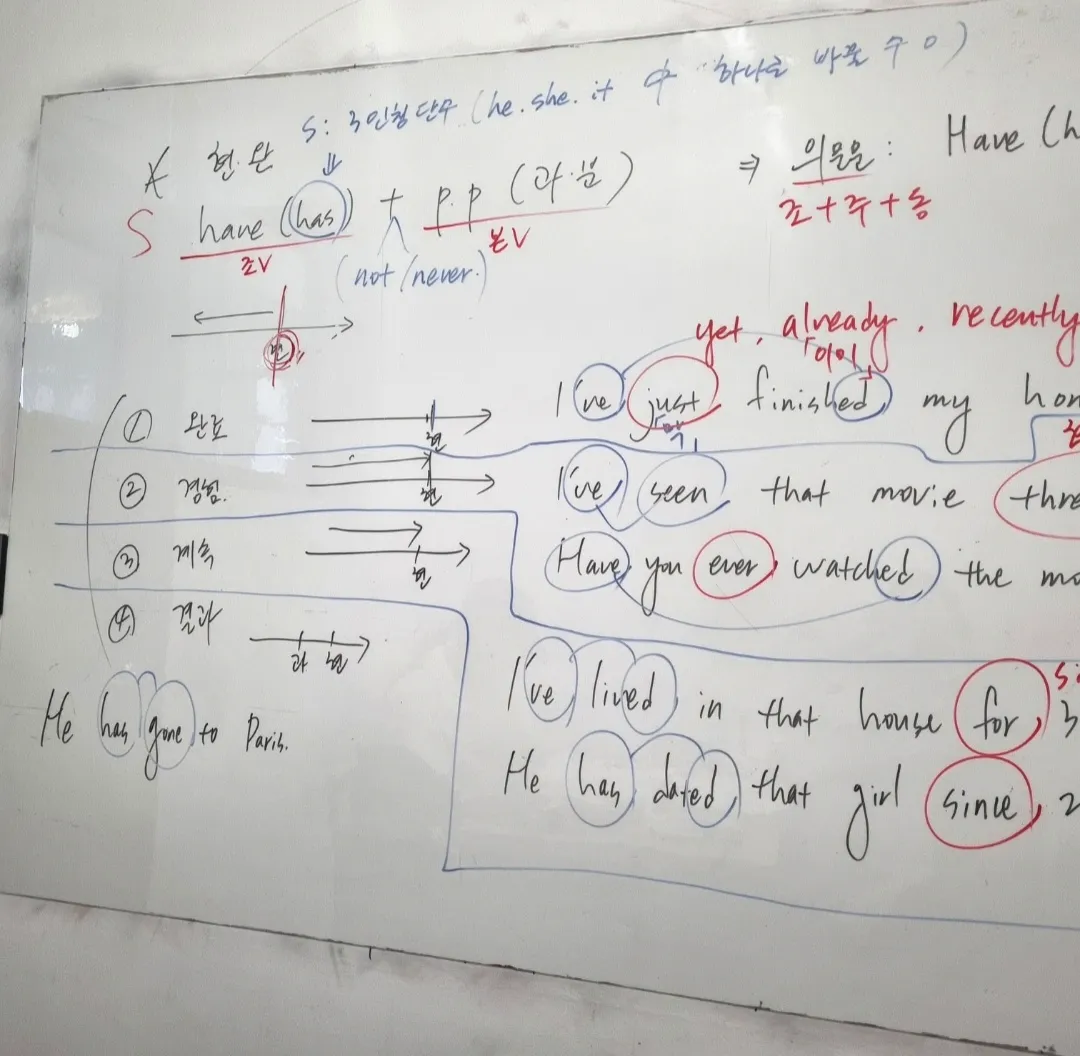 S: 3인칭단수 (he. she. it 中 하나로 바꿀 수 o)
현.완
S have (has) + p.p (과.분)
조V 본V
(not/never.)
⇒ 의문문: Have (h
조+주+동
현
yet, already, recently
「이미」
① 완료 현 I've just finished my hom
② 경험. 현 I've seen that movie thre
Have you ever watched the mo
③ 계속 현
④ 결과 과 현
He has gone to Paris.
I've lived in that house for 3
He has dated that girl since 2